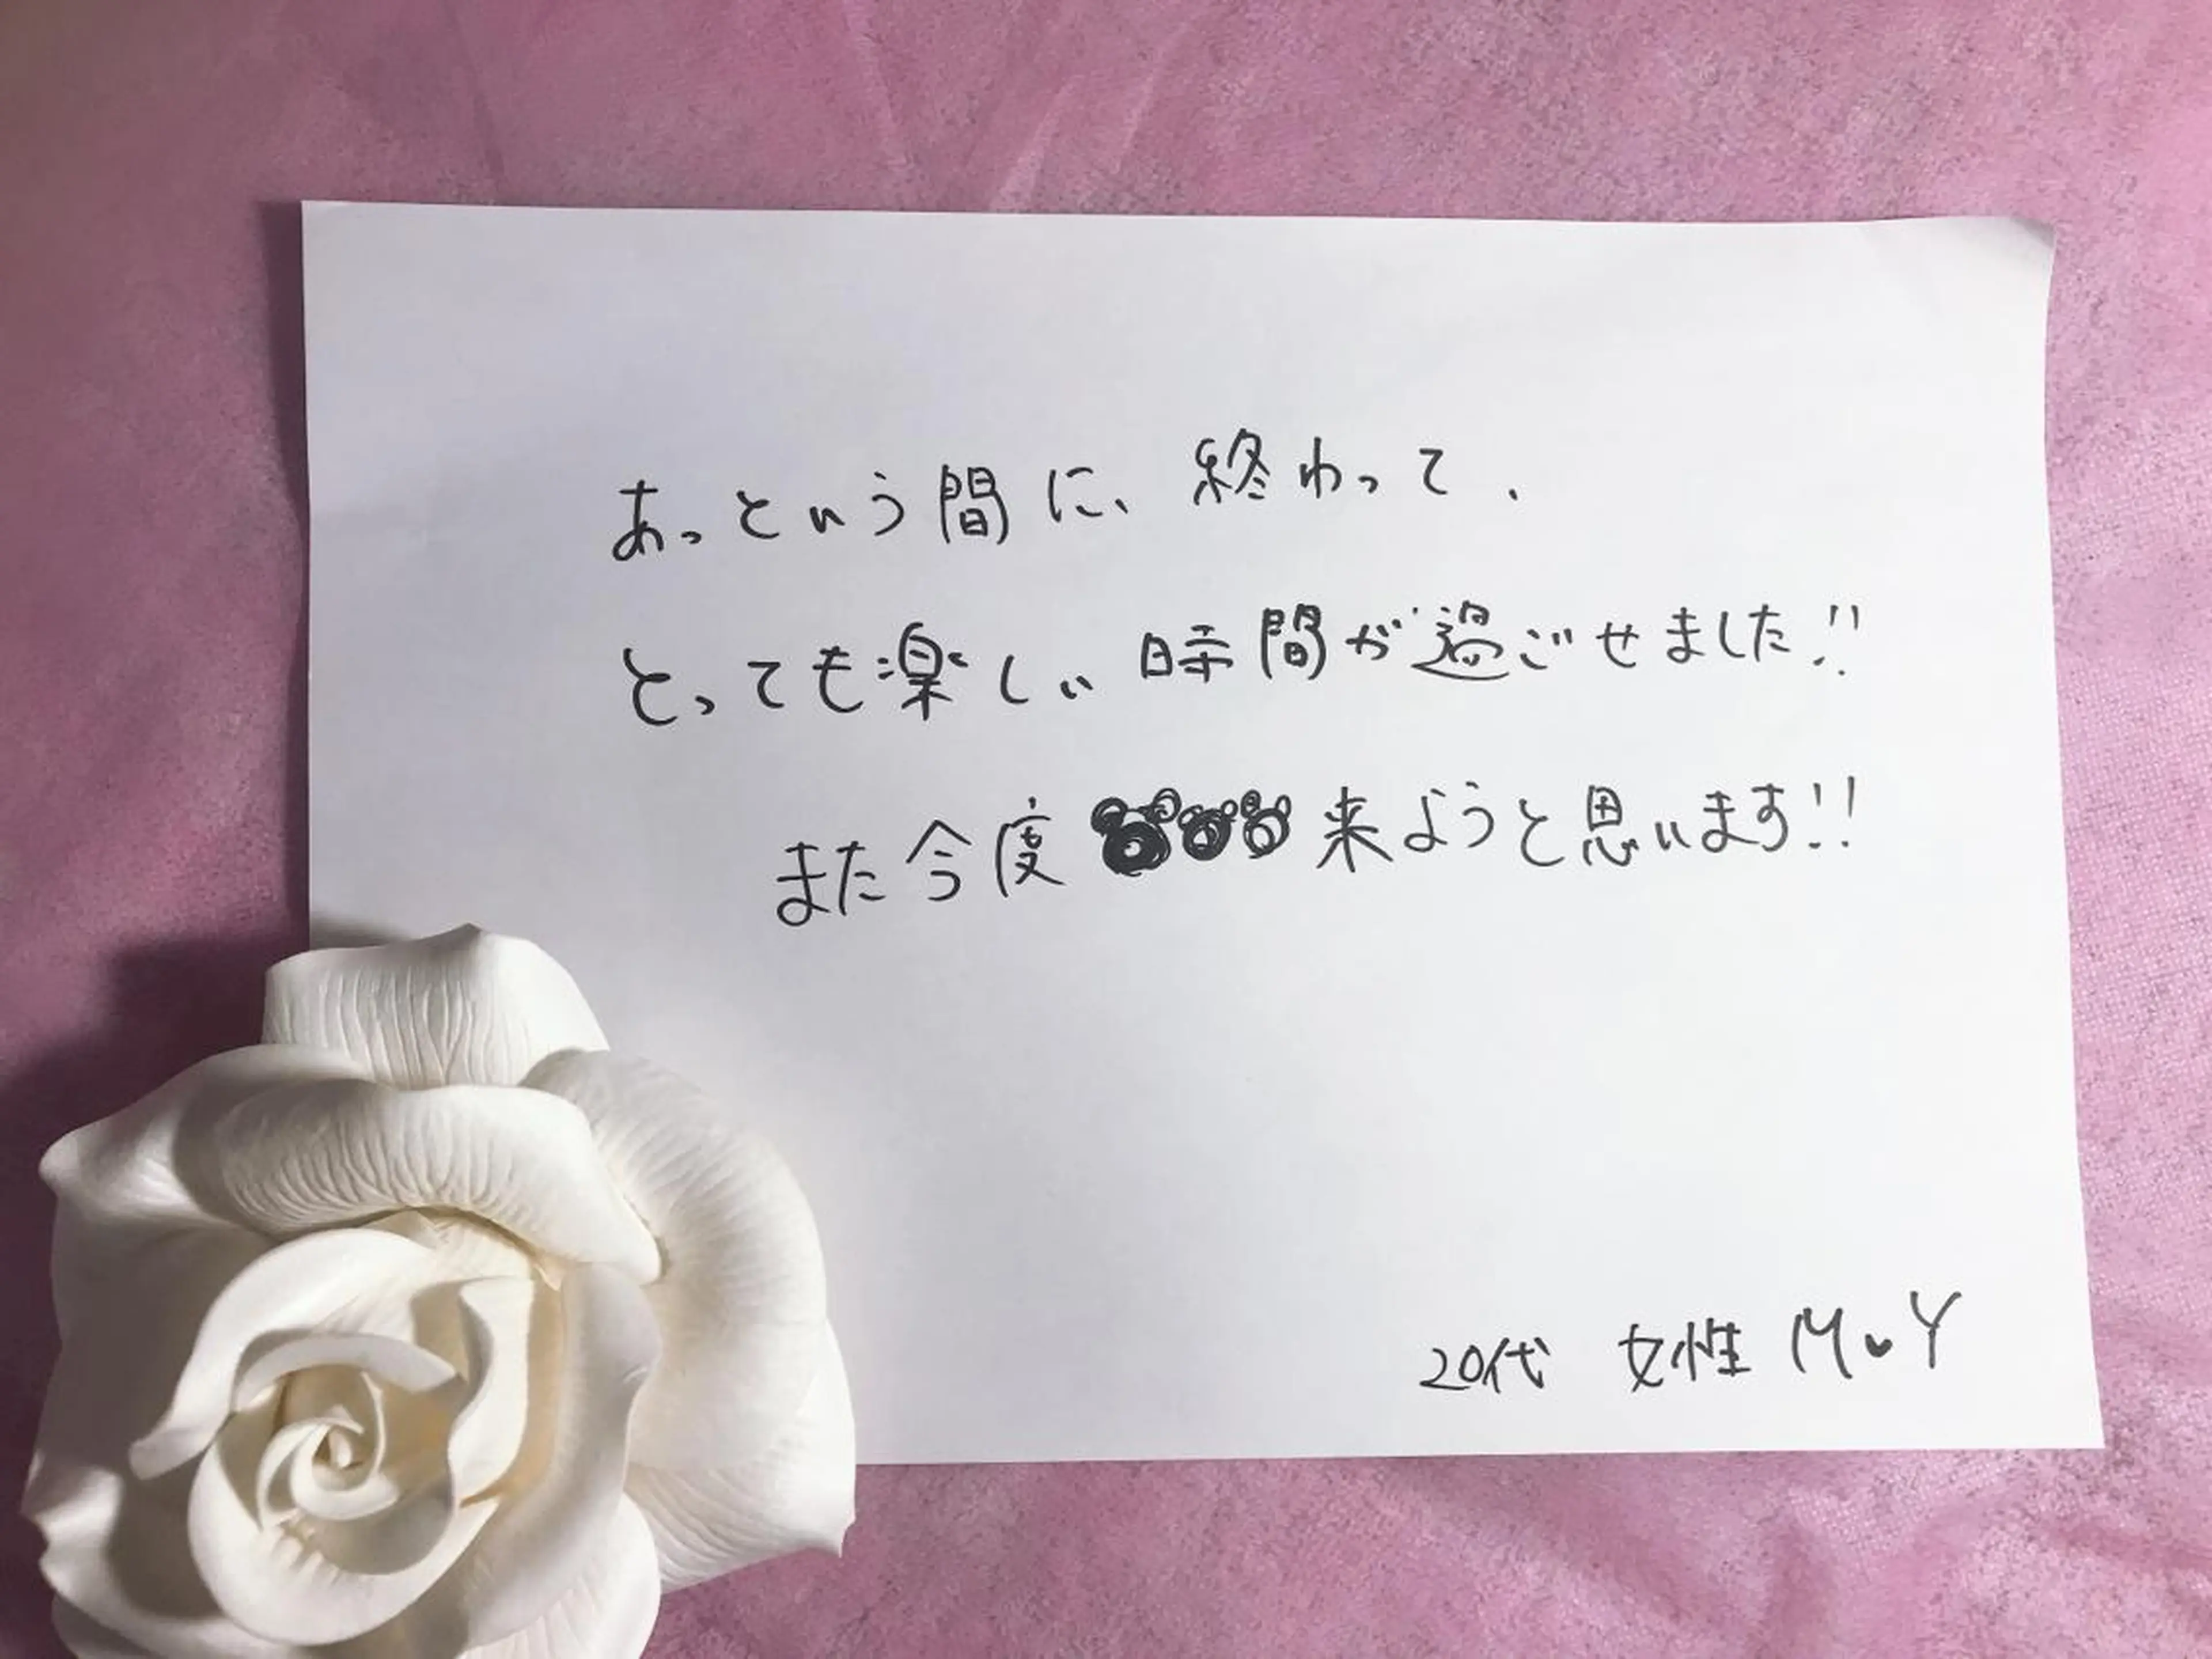 あっという間に、終わって、
とっても楽しい時間が過ごせました!!
また今度来ようと思います!!
20代 女性 M♥Y